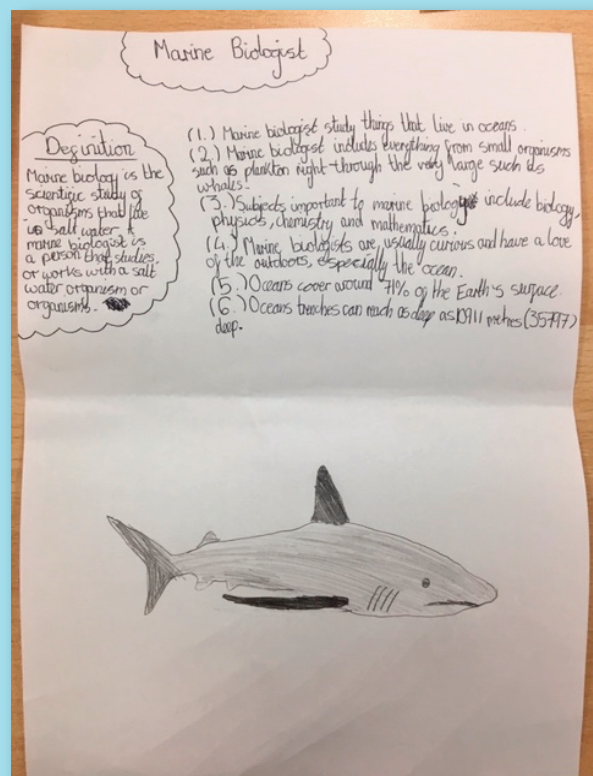 Marine Biologist
Definition
Marine biology is the
scientific study of
organisms that live
in salt water. A
marine biologist is
a person that studies
or works with a salt
water organism or
organisms.
(1.) Marine biologist study things that live in oceans.
(2.) Marine biologist includes everything from small organisms
such as plankton right through the very large such as
whales.
(3.) Subjects important to marine biology include biology,
physics, chemistry and mathematics.
(4.) Marine biologists are usually curious and have a love
of the outdoors, especially the ocean.
(5.) Oceans cover around 71% of the Earth's surface.
(6.) Oceans trenches can reach as deep as 10911 metres (35797)
deep.